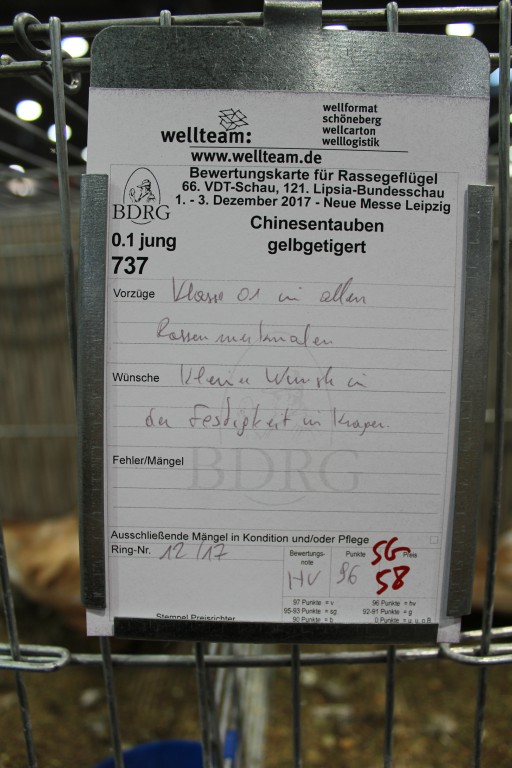 wellteam:
wellformat
schöneberg
wellcarton
welllogistik
www.wellteam.de
BDRG
Bewertungskarte für Rassegeflügel
66. VDT-Schau, 121. Lipsia-Bundesschau
1. - 3. Dezember 2017 - Neue Messe Leipzig
0.1 jung
Chinesentauben
737
gelbgetigert
Vorzüge Klasse 01 in allen
Rassenmerkmalen
Wünsche kleine Wunsch in
der Festigkeit im Kragen.
Fehler/Mängel
BDRG
Ausschließende Mängel in Kondition und/oder Pflege
Ring-Nr. 12/17
Bewertungs-
note
HV
Punkte
96
Preis
SG
58
97 Punkte = v 96 Punkte = hv
95-93 Punkte = sg 92-91 Punkte = g
90 Punkte = b 0 Punkte = u, o, n B
Stempel Preisrichter